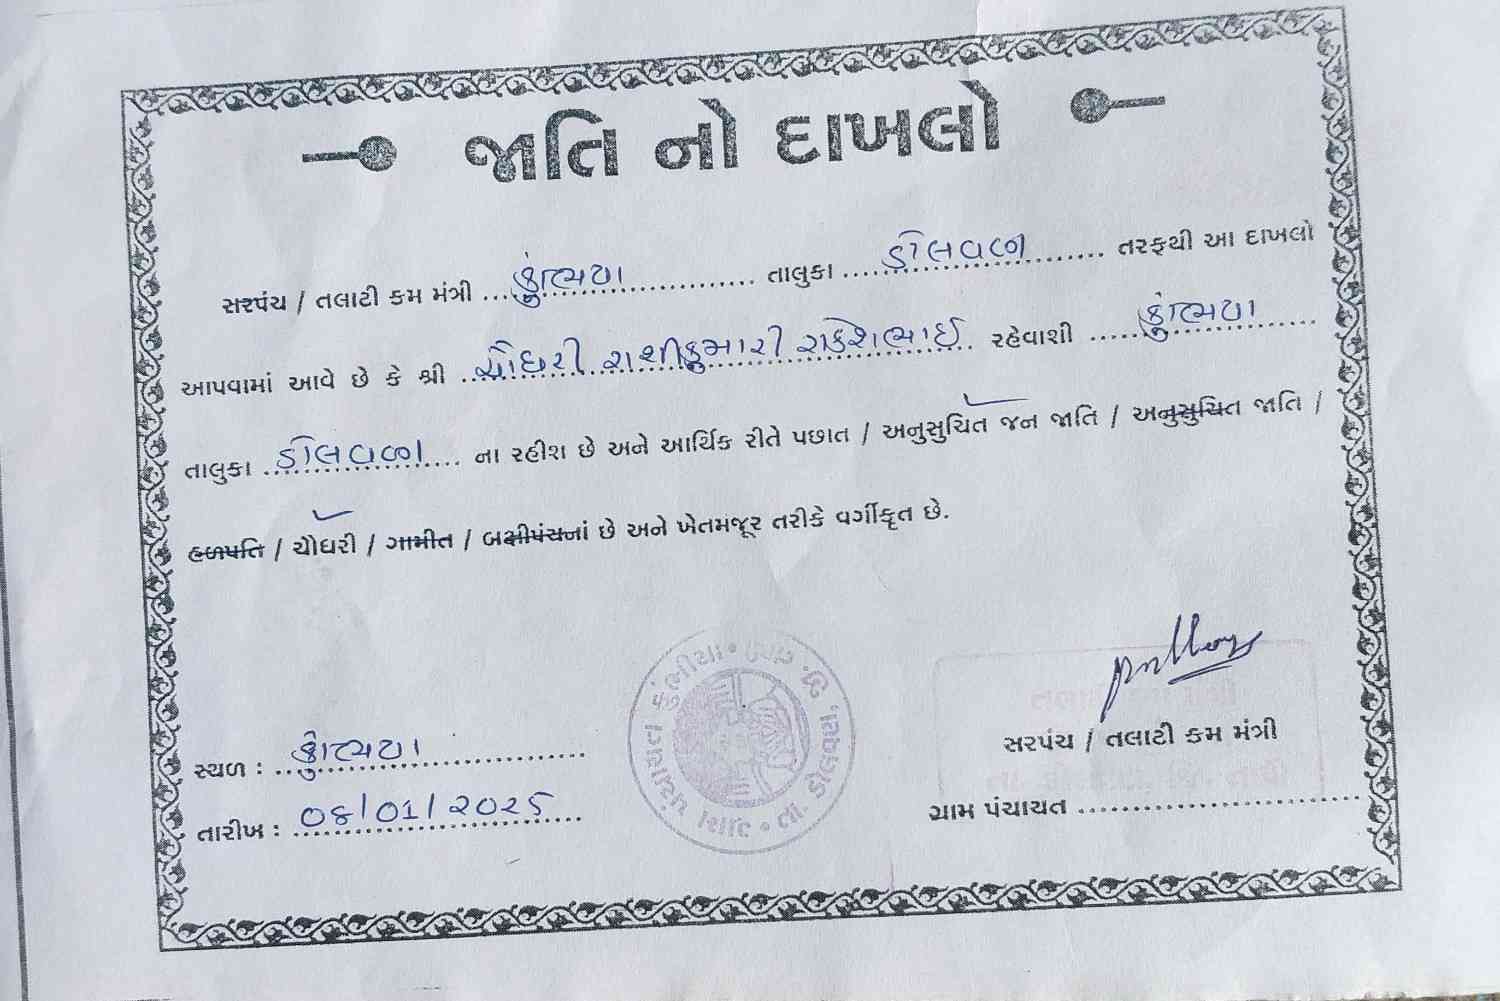 જાતિ નો દાખલો
સરપંચ / તલાટી કમ મંત્રી ... કુંભિયા ... તાલુકા ... ડોલવણ ... તરફથી આ દાખલો
આપવામાં આવે છે કે શ્રી ... ચૌધરી રાશીકુમારી રાકેશભાઈ ... રહેવાશી ... કુંભિયા ...
તાલુકા ... ડોલવણ ... ના રહીશ છે અને આર્થિક રીતે પછાત / અનુસુચિત જન જાતિ / અનુસુચિત જાતિ /
હળપતિ / ચૌધરી / ગામીત / બક્ષીપંચનાં છે અને ખેતમજૂર તરીકે વર્ગીકૃત છે.
કુંભીયા ગ્રુપ ગ્રામ પંચાયત • તા. ડોલવણ, જિ. તાપી •
તલાટી કમ મંત્રી
સરપંચ / તલાટી કમ મંત્રી
સ્થળ : ... કુંભિયા ...
તા. ડોલવણ, જિ. તાપી
તારીખ : ... 08/01/૨૦૨૫ ...
ગ્રામ પંચાયત ...